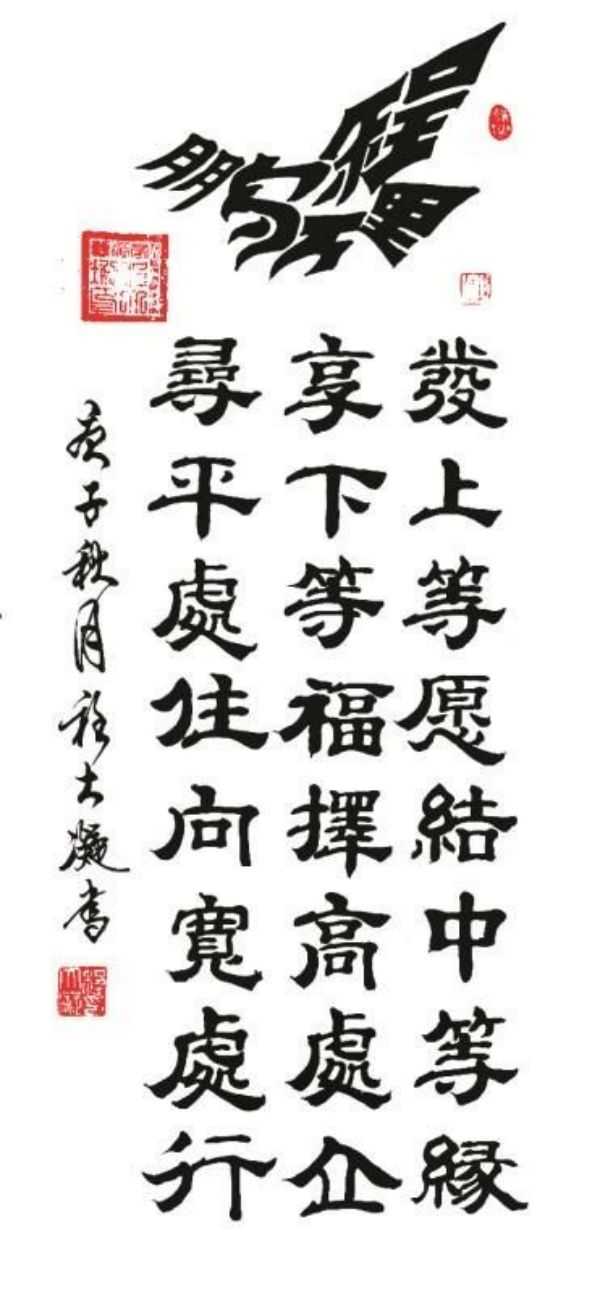 鹏程万里
發上等愿結中等緣
享下等福擇高處企
尋平處住向寬處行
庚子秋月程大凝书